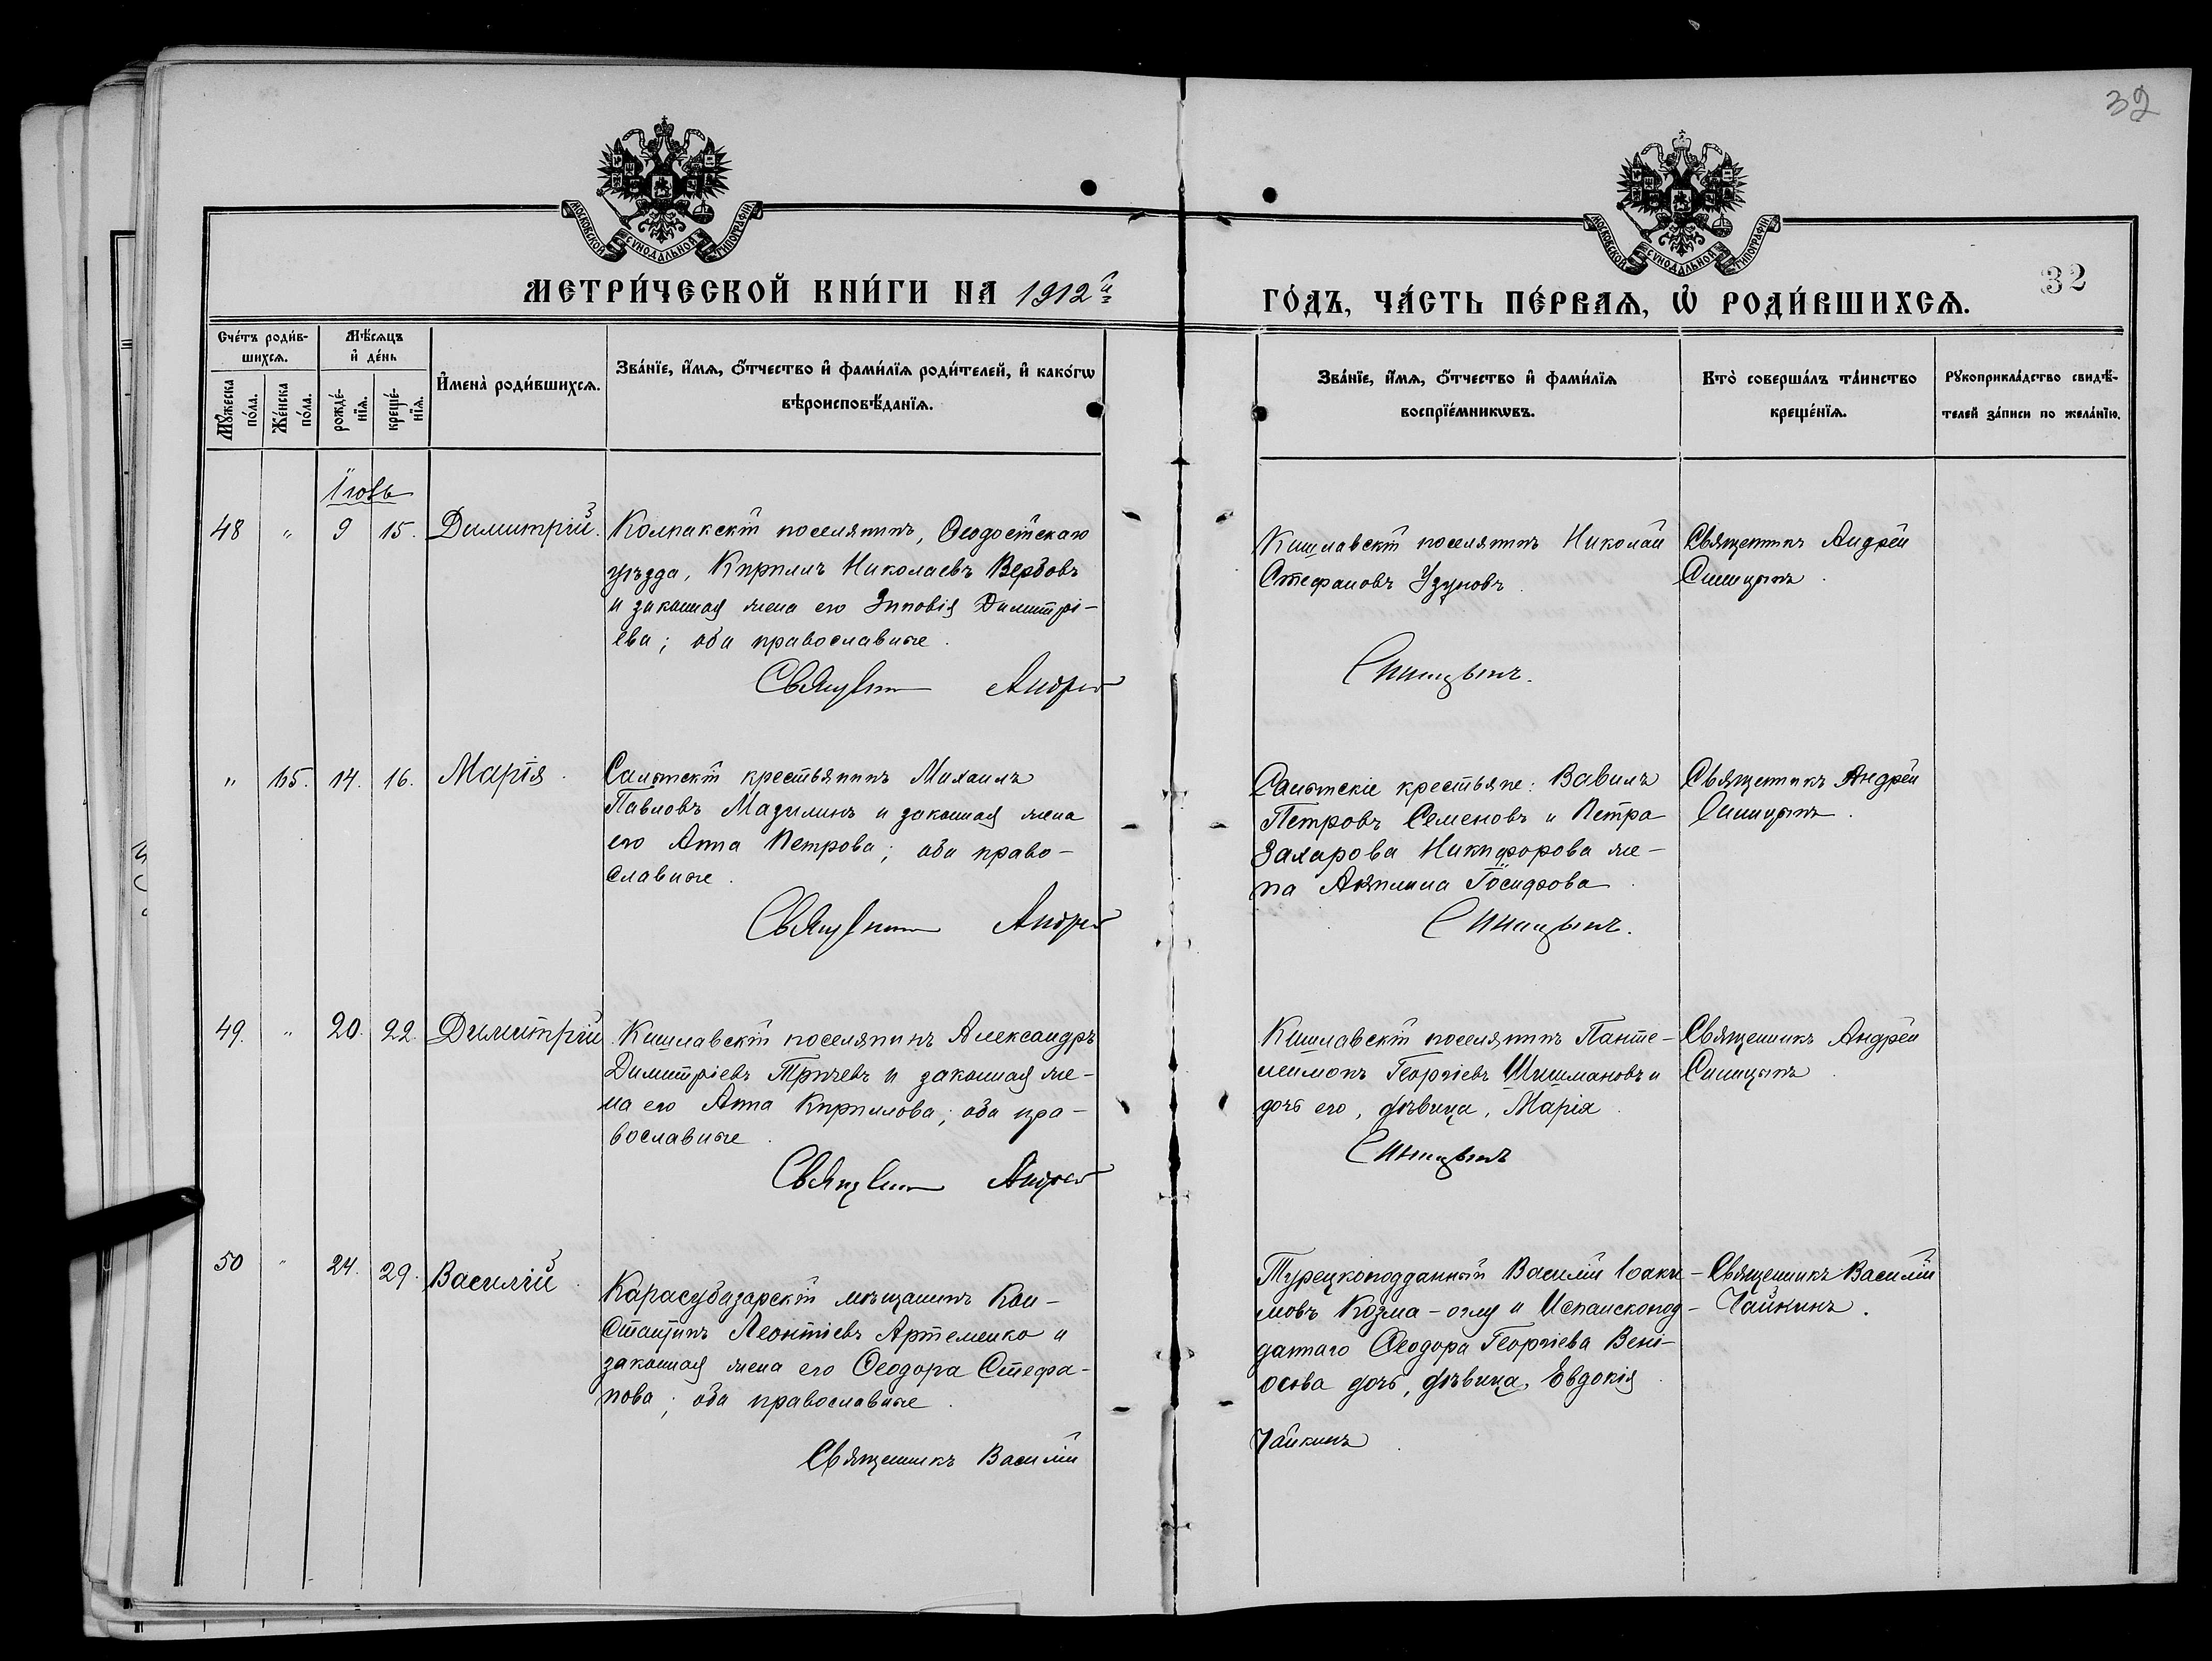 32
МОСКОВСКОЙ СѴНОДАЛЬНОЙ ТИПОГРАФІИ
МОСКОВСКОЙ СѴНОДАЛЬНОЙ ТИПОГРАФІИ
МЕТРИ́ЧЕСКОЙ КНИ́ГИ НА 1912й
ГО́ДЪ, ЧА́СТЬ ПЕ́РВАѦ, Ѡ҆ РОДИ́ВШИХСѦ.
32
Сче́тъ роди́в-
шихсѧ.
Мꙋ́жеска
по́ла.
Же́нска
по́ла.
Мѣ́сѧцъ
и҆ де́нь
рожде́-
нїѧ.
креще́-
нїѧ.
И҆мена̀ роди́вшихсѧ.
Зва́нїе, и҆́мѧ, ѻ҆́тчество и҆ фами́лїѧ роди́телей, и҆ како́гѡ
вѣроисповѣ́данїѧ.
Зва́нїе, и҆́мѧ, ѻ҆́тчество и҆ фами́лїѧ
воспрїе́мникѡвъ.
Кто̀ соверша́лъ та́инство
креще́нїѧ.
Рꙋкоприкла́дство свидѣ́-
телей за́писи по жела́нїю.
Іюль
48 " 9 15. Димитрій.
Колпакскій поселянинъ, Ѳеодосійскаго
уѣзда, Кириллъ Николаевъ Вербовъ
и законная жена его Зиновія Димитрі-
ева; оба православные.
Священникъ Андрей
Кишлавскій поселянинъ Николай
Стефановъ Узуновъ.
Синицынъ.
Священникъ Андрей
Синицынъ.
" 45. 14. 16. Марія.
Салынскій крестьянинъ Михаилъ
Павловъ Мазилинъ и законная жена
его Анна Петрова; оба право-
славные.
Священникъ Андрей
Салынскіе крестьяне: Вавилъ
Петровъ Семеновъ и Петра
Захарова Никифорова же-
на Акилина Іосифова.
Синицынъ.
Священникъ Андрей
Синицынъ.
49. " 20. 22. Димитрій
Кишлавскій поселянинъ Александръ
Димитріевъ Тричевъ и законная же-
на его Анна Кириллова; оба пра-
вославные.
Священникъ Андрей
Кишлавскій поселянинъ Панте-
леимонъ Георгіевъ Шишмановъ и
дочь его, дѣвица, Марія.
Синицынъ
Священникъ Андрей
Синицынъ.
50 " 24. 29. Василій.
Карасубазарскій мѣщанинъ Кон-
стантинъ Леонтіевъ Артеменко и
законная жена его Ѳеодора Стефа-
нова; оба православные.
Священникъ Василій
Турецкоподданный Василій Іоаки-
мовъ Козма-оглу и Испанскопод-
даннаго Ѳеодора Георгіева Вені-
осова дочь, дѣвица, Евдокія.
Чайкинъ.
Священникъ Василій
Чайкинъ.